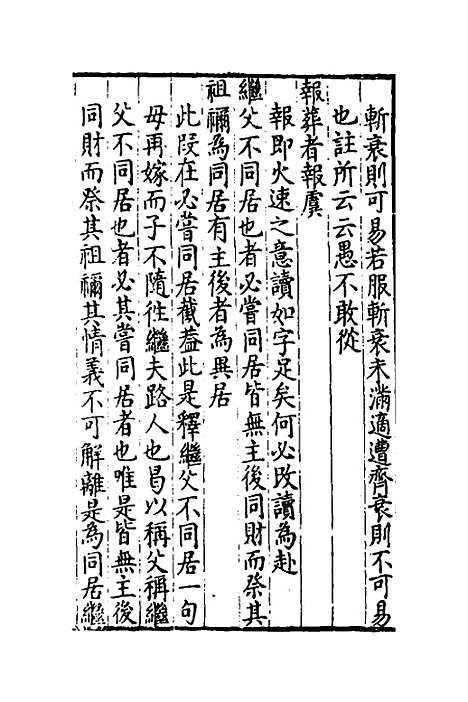 斬衰則可易若服斬衰未滿適遭齊衰則不可易
也註所云云愚不敢從
報葬者報虞
報即火速之意讀如字足矣何必改讀為赴
繼父不同居也者必嘗同居皆無主後同財而祭其
祖禰為同居有主後者為異居
此段在必嘗同居截葢此是釋繼父不同居一句
母再嫁而子不隨徃繼夫路人也曷以稱父稱繼
父不同居也者必其嘗同居者也唯是皆無主後
同財而祭其祖禰其情義不可解離是為同居繼